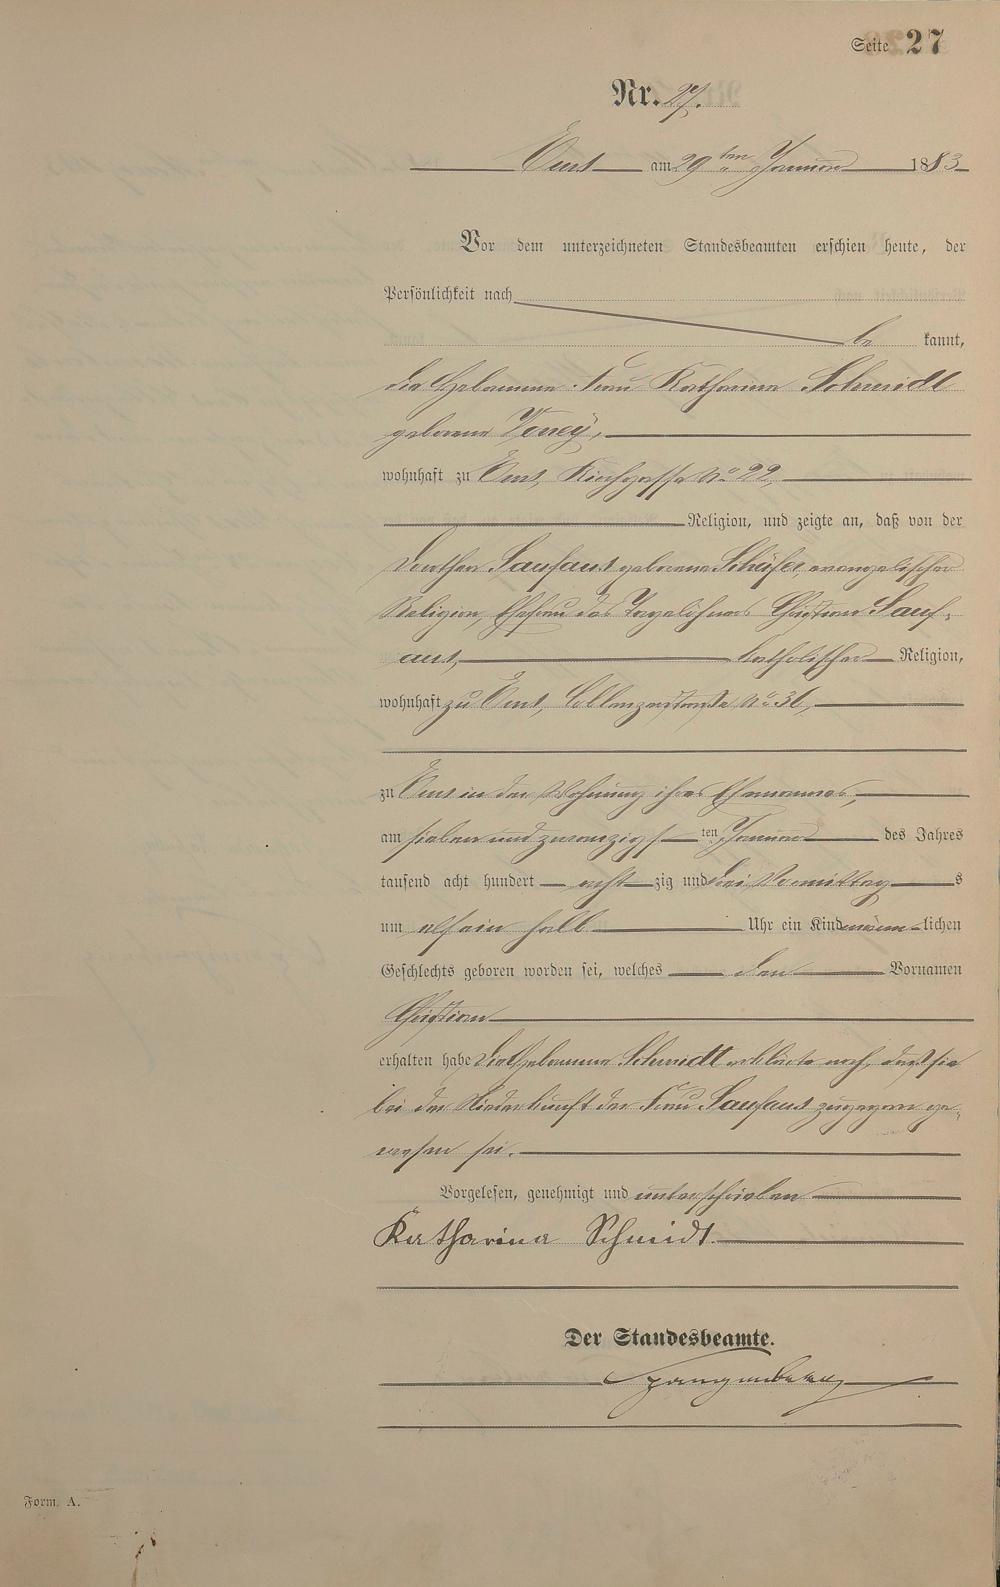 Seite 27
Nr. 27.
Ems am 29 ten Januar 1883
Vor dem unterzeichneten Standesbeamten erschien heute, der
Persönlichkeit nach
be kannt,
die Hebamme Frau Katharina Schmidt
geborene
wohnhaft zu Ems, Kirchgasse No 22,
Religion, und zeigte an, daß von der
Dorothea Saufaus geborene Schäfer evangelischer
Religion, Ehefrau des Tagelöhners Christian Sauf-
aus, katholischer Religion,
wohnhaft zu Ems, Coblenzerstraße No 36,
zu Ems in der Wohnung ihres Ehemannes,
am sieben und zwanzigsten Januar des Jahres
tausend acht hundert acht zig und drei Vormittags
um elf ein halb Uhr ein Kind männlichen
Geschlechts geboren worden sei, welches den Vornamen
Christian
erhalten habe Die Hebamme Schmidt erklärte noch, daß sie
bei der Niederkunft der Frau Saufaus zugegen ge-
wesen sei.
Vorgelesen, genehmigt und unterschrieben
Katharina Schmidt
Der Standesbeamte.
Spangenberg
Form. A.